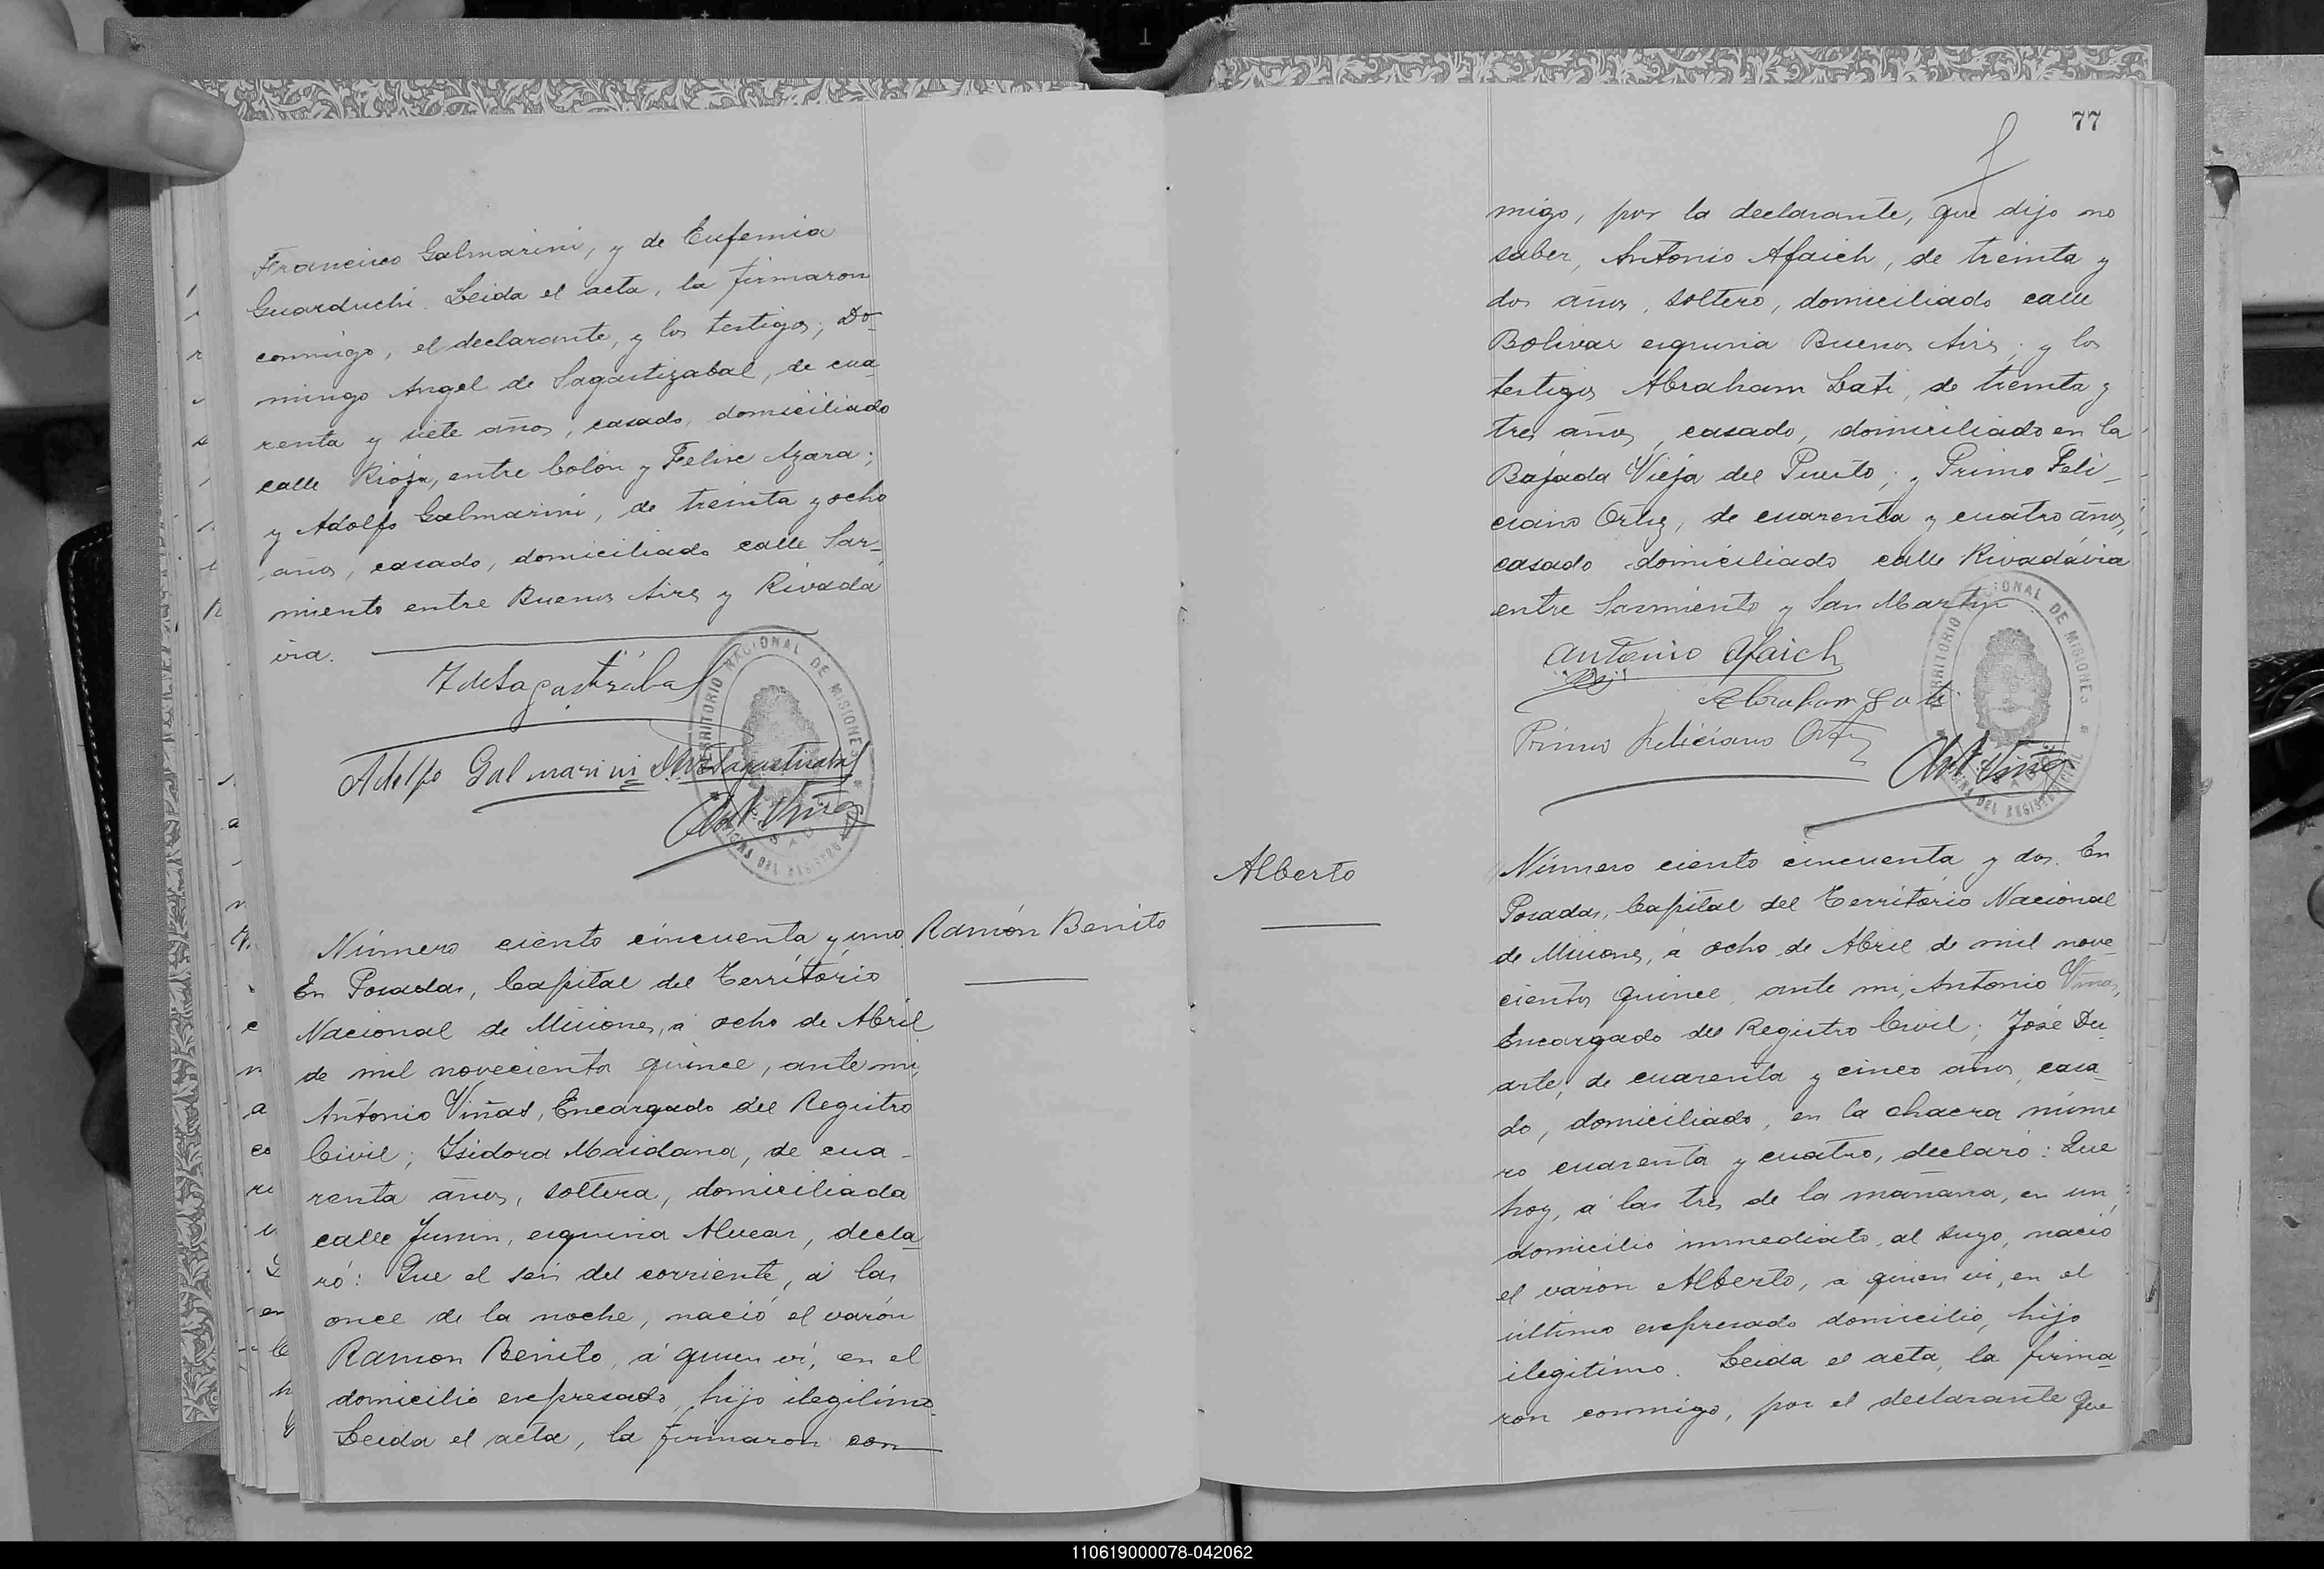 Francisco Galmarini, y de Eufemia
Guarduchi. Leida el acta, la firmaron
conmigo, el declarante, y los testigos; Do-
mingo Angel de Sagastizabal, de cua
renta y siete años, casado, domiciliado
calle Rioja, entre Colón y Felix Azara;
y Adolfo Galmarini, de treinta y ocho
años, casado, domiciliado calle Sar-
miento entre Buenos Aires y Rivada
via.
Adolfo Galmarini
TERRITORIO NACIONAL DE MISIONES
Número ciento cincuenta y uno
Ramón Benito
En Posadas, Capital del Territorio
Nacional de Misiones, á ocho de Abril
de mil novecientos quince, ante mi,
Antonio Viñas, Encargado del Registro
Civil; Isidora Maidana, de cua-
renta años, soltera, domiciliada
calle Junin, esquina Alvear, decla-
ró: Que el seis del corriente, á las
once de la noche, nació el varón
Ramon Benito, á quien ví, en el
domicilio expresado, hijo ilegitimo.
Leida el acta, la firmaron con
77
migo, por la declarante, que dijo no
saber, Antonio Afaich, de treinta y
dos años, soltero, domiciliado calle
Bolivar esquina Buenos Aires; y los
testigos Abraham Lati, de treinta y
tres años, casado, domiciliado en la
Bajada Vieja del Puerto; y Primo Feli-
ciano Ortiz, de cuarenta y cuatro años,
casado domiciliado calle Rivadavia
entre Sarmiento y San Martin
Antonio Afaich
Abraham Lati
Primo Feliciano Ortiz
TERRITORIO NACIONAL DE MISIONES
OFICINA DEL REGISTRO CIVIL
Alberto
Número ciento cincuenta y dos. En
Posadas, Capital del Territorio Nacional
de Misiones, á ocho de Abril de mil nove-
cientos quince, ante mi, Antonio Viñas,
Encargado del Registro Civil; José Du-
arte, de cuarenta y cinco años, casa-
do, domiciliado, en la chacra núme
ro cuarenta y cuatro, declaró: Que
hoy, á las tres de la mañana, en un
domicilio inmediato al suyo, nació
el varón Alberto, a quien ví, en el
último expresado domicilio, hijo
ilegitimo. Leida el acta, la firma-
ron conmigo, por el declarante que
110619000078-042062